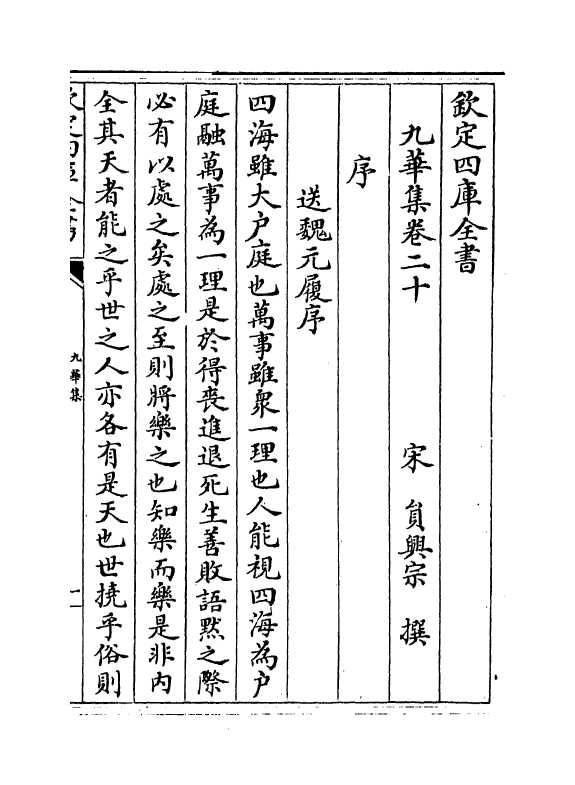 欽定四庫全書
九華集卷二十
宋 員興宗 撰
序
送魏元履序
四海雖大户庭也萬事雖衆一理也人能視四海為户
庭融萬事為一理是於得喪進退死生善敗語黙之際
必有以處之矣處之至則將樂之也知樂而樂是非内
全其天者能之乎世之人亦各有是天也世撓乎俗則
九華集
一